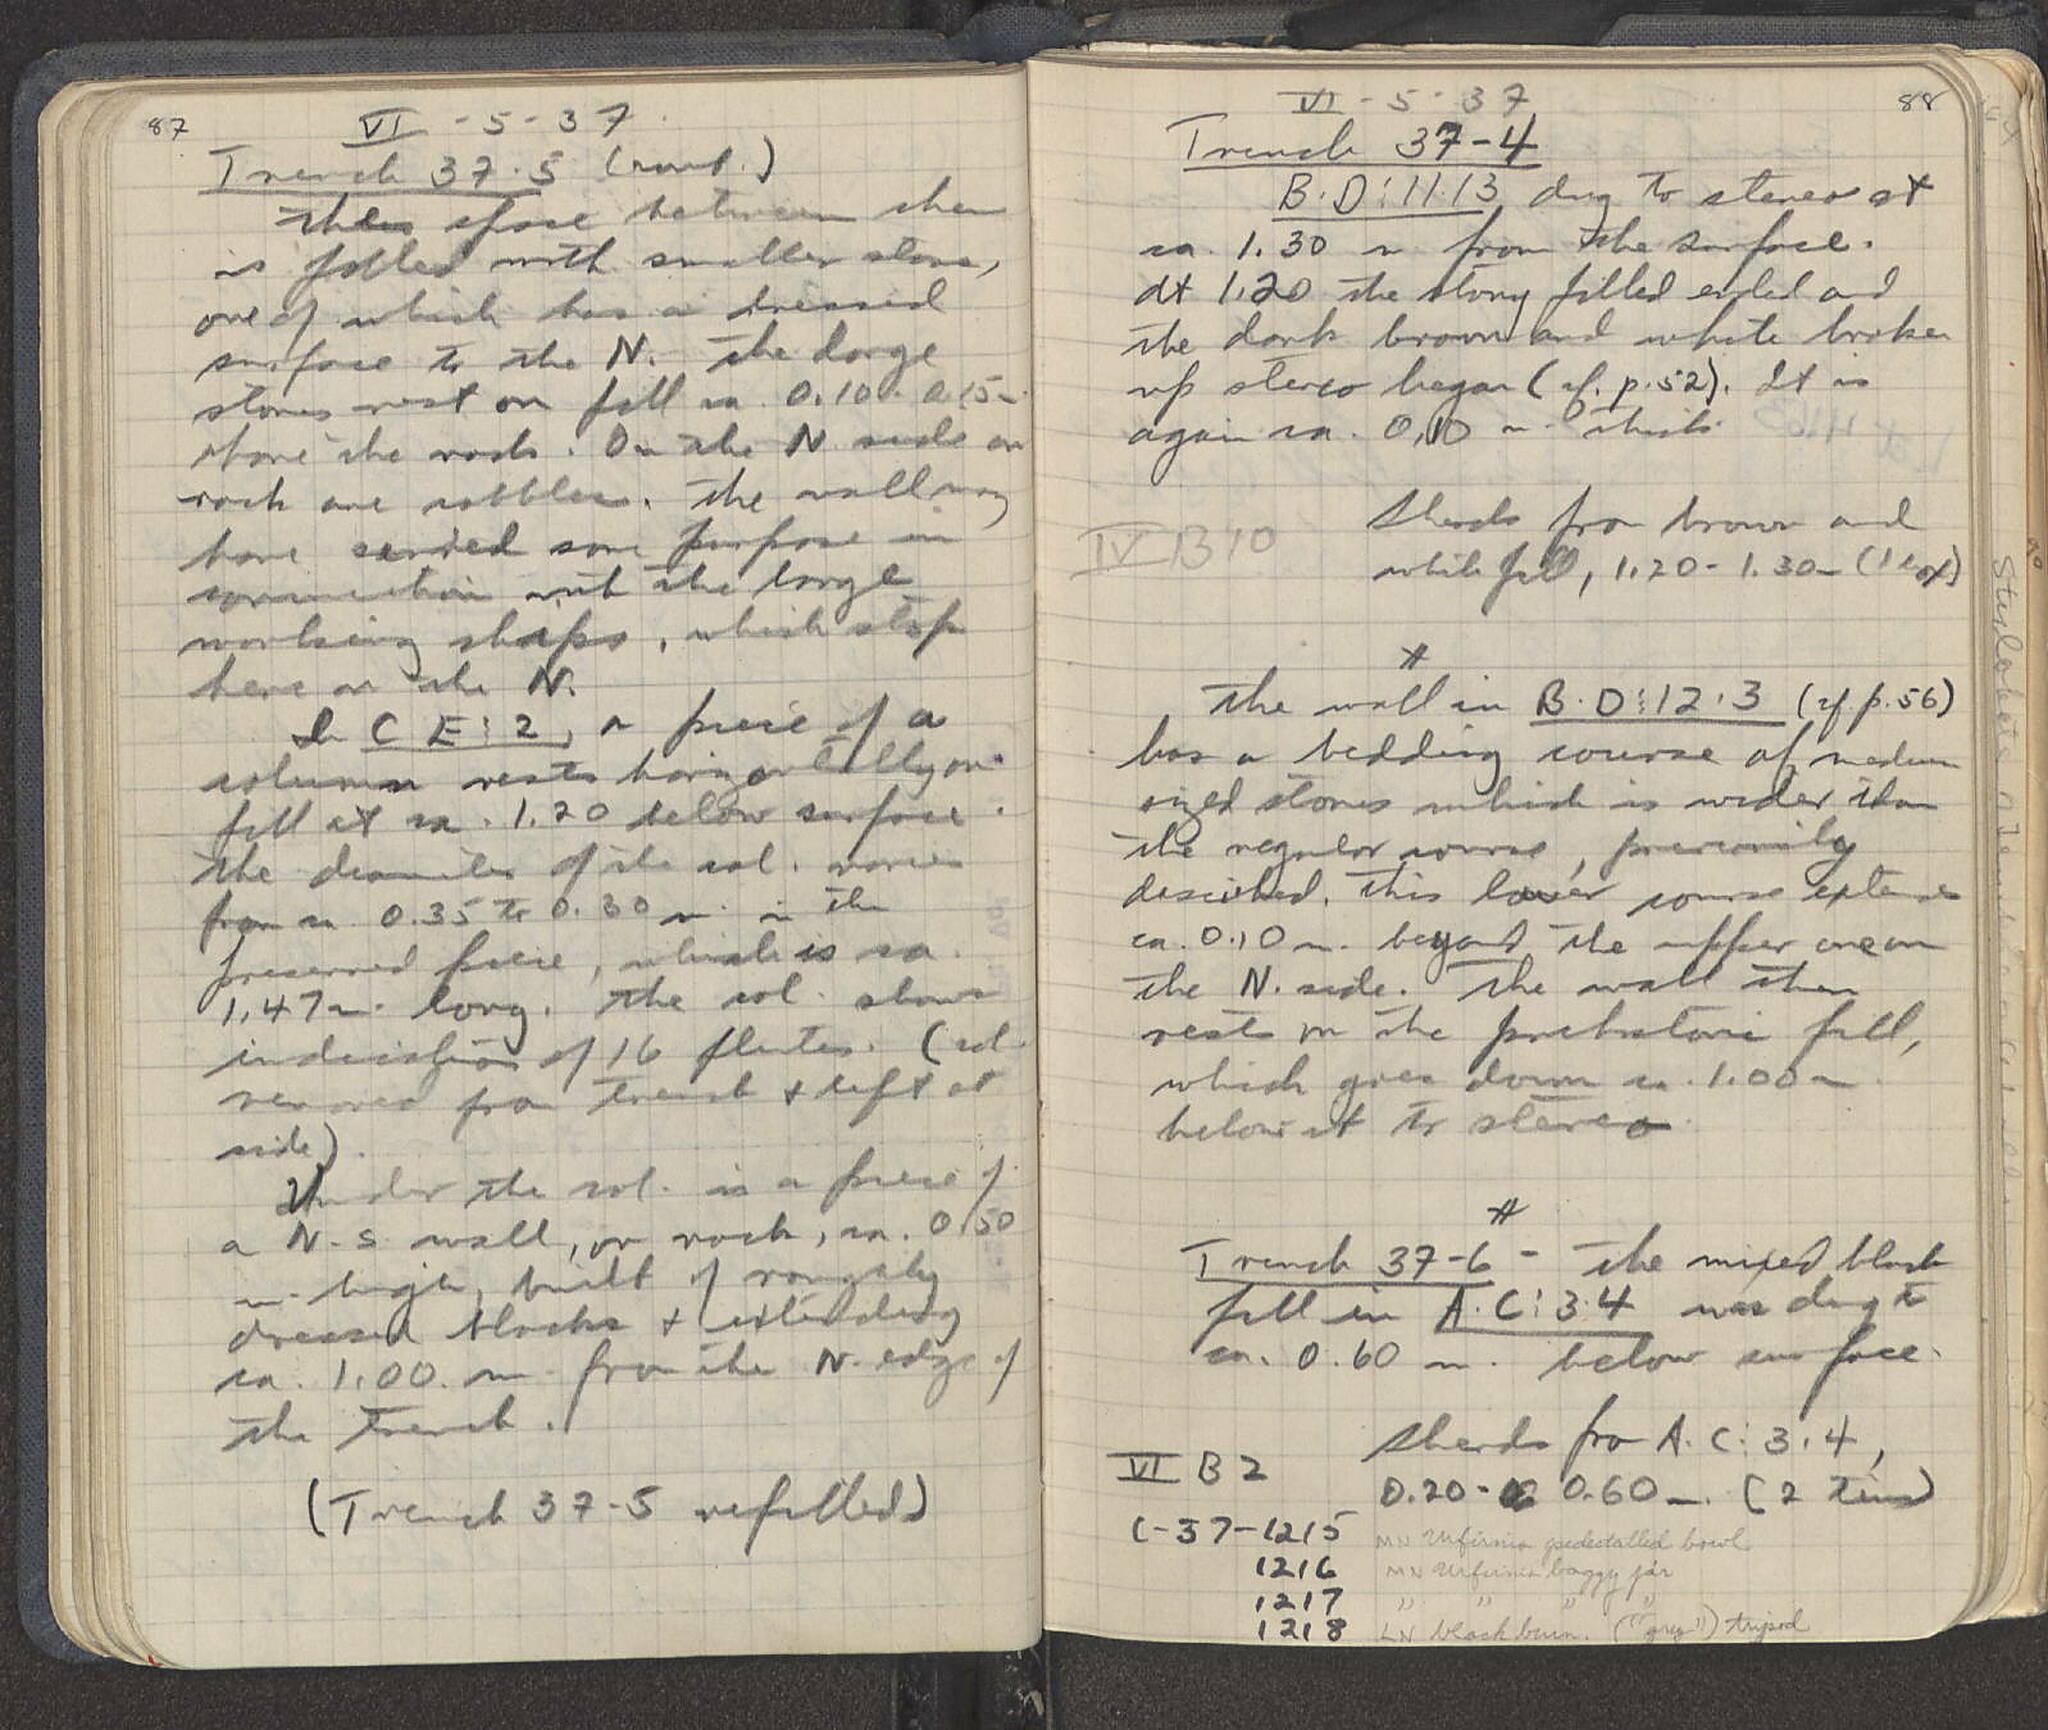 87
VI - 5 - 37
Trench 37-5 (cont.)
The space between them
is filled with smaller stones,
one of which has a dressed
surface to the N. The large
stones rest on fill ca. 0.10 - 0.15 m.
above the rock. On the N side on
rock are cobbles. The wall may
have served some purpose in
connection with the large
working chips, which stop
here on the N.
In C E:2, a piece of a
column rests horizontally on
fill at ca. 1.20 below surface.
The diameter of the col. varies
from ca 0.35 to 0.30 m. in the
preserved piece, which is ca.
1.47 m. long. The col. shows
indication of 16 flutes. (col.
removed from trench + left at
side).
Under the col. is a piece of
a N-S wall, on rock, ca. 0.50
m. high, built of roughly
dressed blocks + extending
ca. 1.00 m. from the N. edge of
the trench.
(Trench 37-5 refilled)
88
VI - 5 - 37
Trench 37-4
B-D:11-13 dug to stereo at
ca. 1.30 m from the surface.
At 1.20 the stony filled ended and
the dark brown and white broken
up stereo began (cf. p.52). It is
again ca. 0.10 m. thick.
IV B 10
Sherds from brown and
white fill, 1.20 - 1.30 m (1 box)
#
The wall in B-D:12-3 (cf. p.56)
has a bedding course of medium
sized stones which is wider than
the regular course, previously
described. This lower course extends
ca. 0.10 m. beyond the upper one on
the N. side. The wall then
rests on the prehistoric fill,
which goes down ca. 1.00 m.
below it to stereo
#
Trench 37-6 - The mixed black
fill in A-C:3-4 was dug to
ca. 0.60 m. below surface.
VI B 2
Sherds fro A-C:3-4,
0.20 - 0.60 m. (2 tins)
C-37-1215 MN Urfirnis pedestalled bowl
1216 MN Urfirnis baggy jar
1217 " " " "
1218 LN black burn. ("grey") tripod